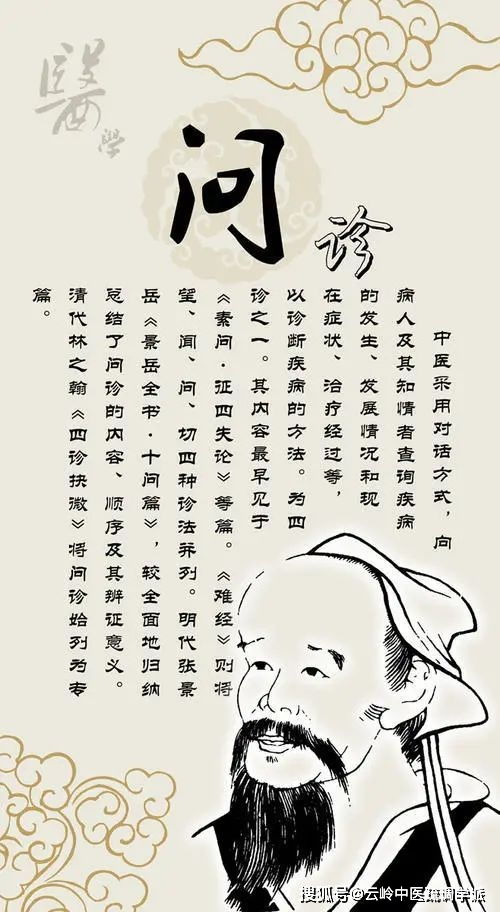 醫
學
问
诊
中医采用对话方式，向
病人及其知情者查询疾病
的发生、发展情况和现
在症状、治疗经过等，
以诊断疾病的方法。为四
诊之一。其内容最早见于
《素问·征四失论》等篇。《难经》则将
望、闻、问、切四种诊法并列。明代张景
岳《景岳全书·十问篇》，较全面地归纳
总结了问诊的内容、顺序及其辨证意义。
清代林之翰《四诊抉微》将问诊始列为专
篇。
搜狐号@云岭中医疏调学派